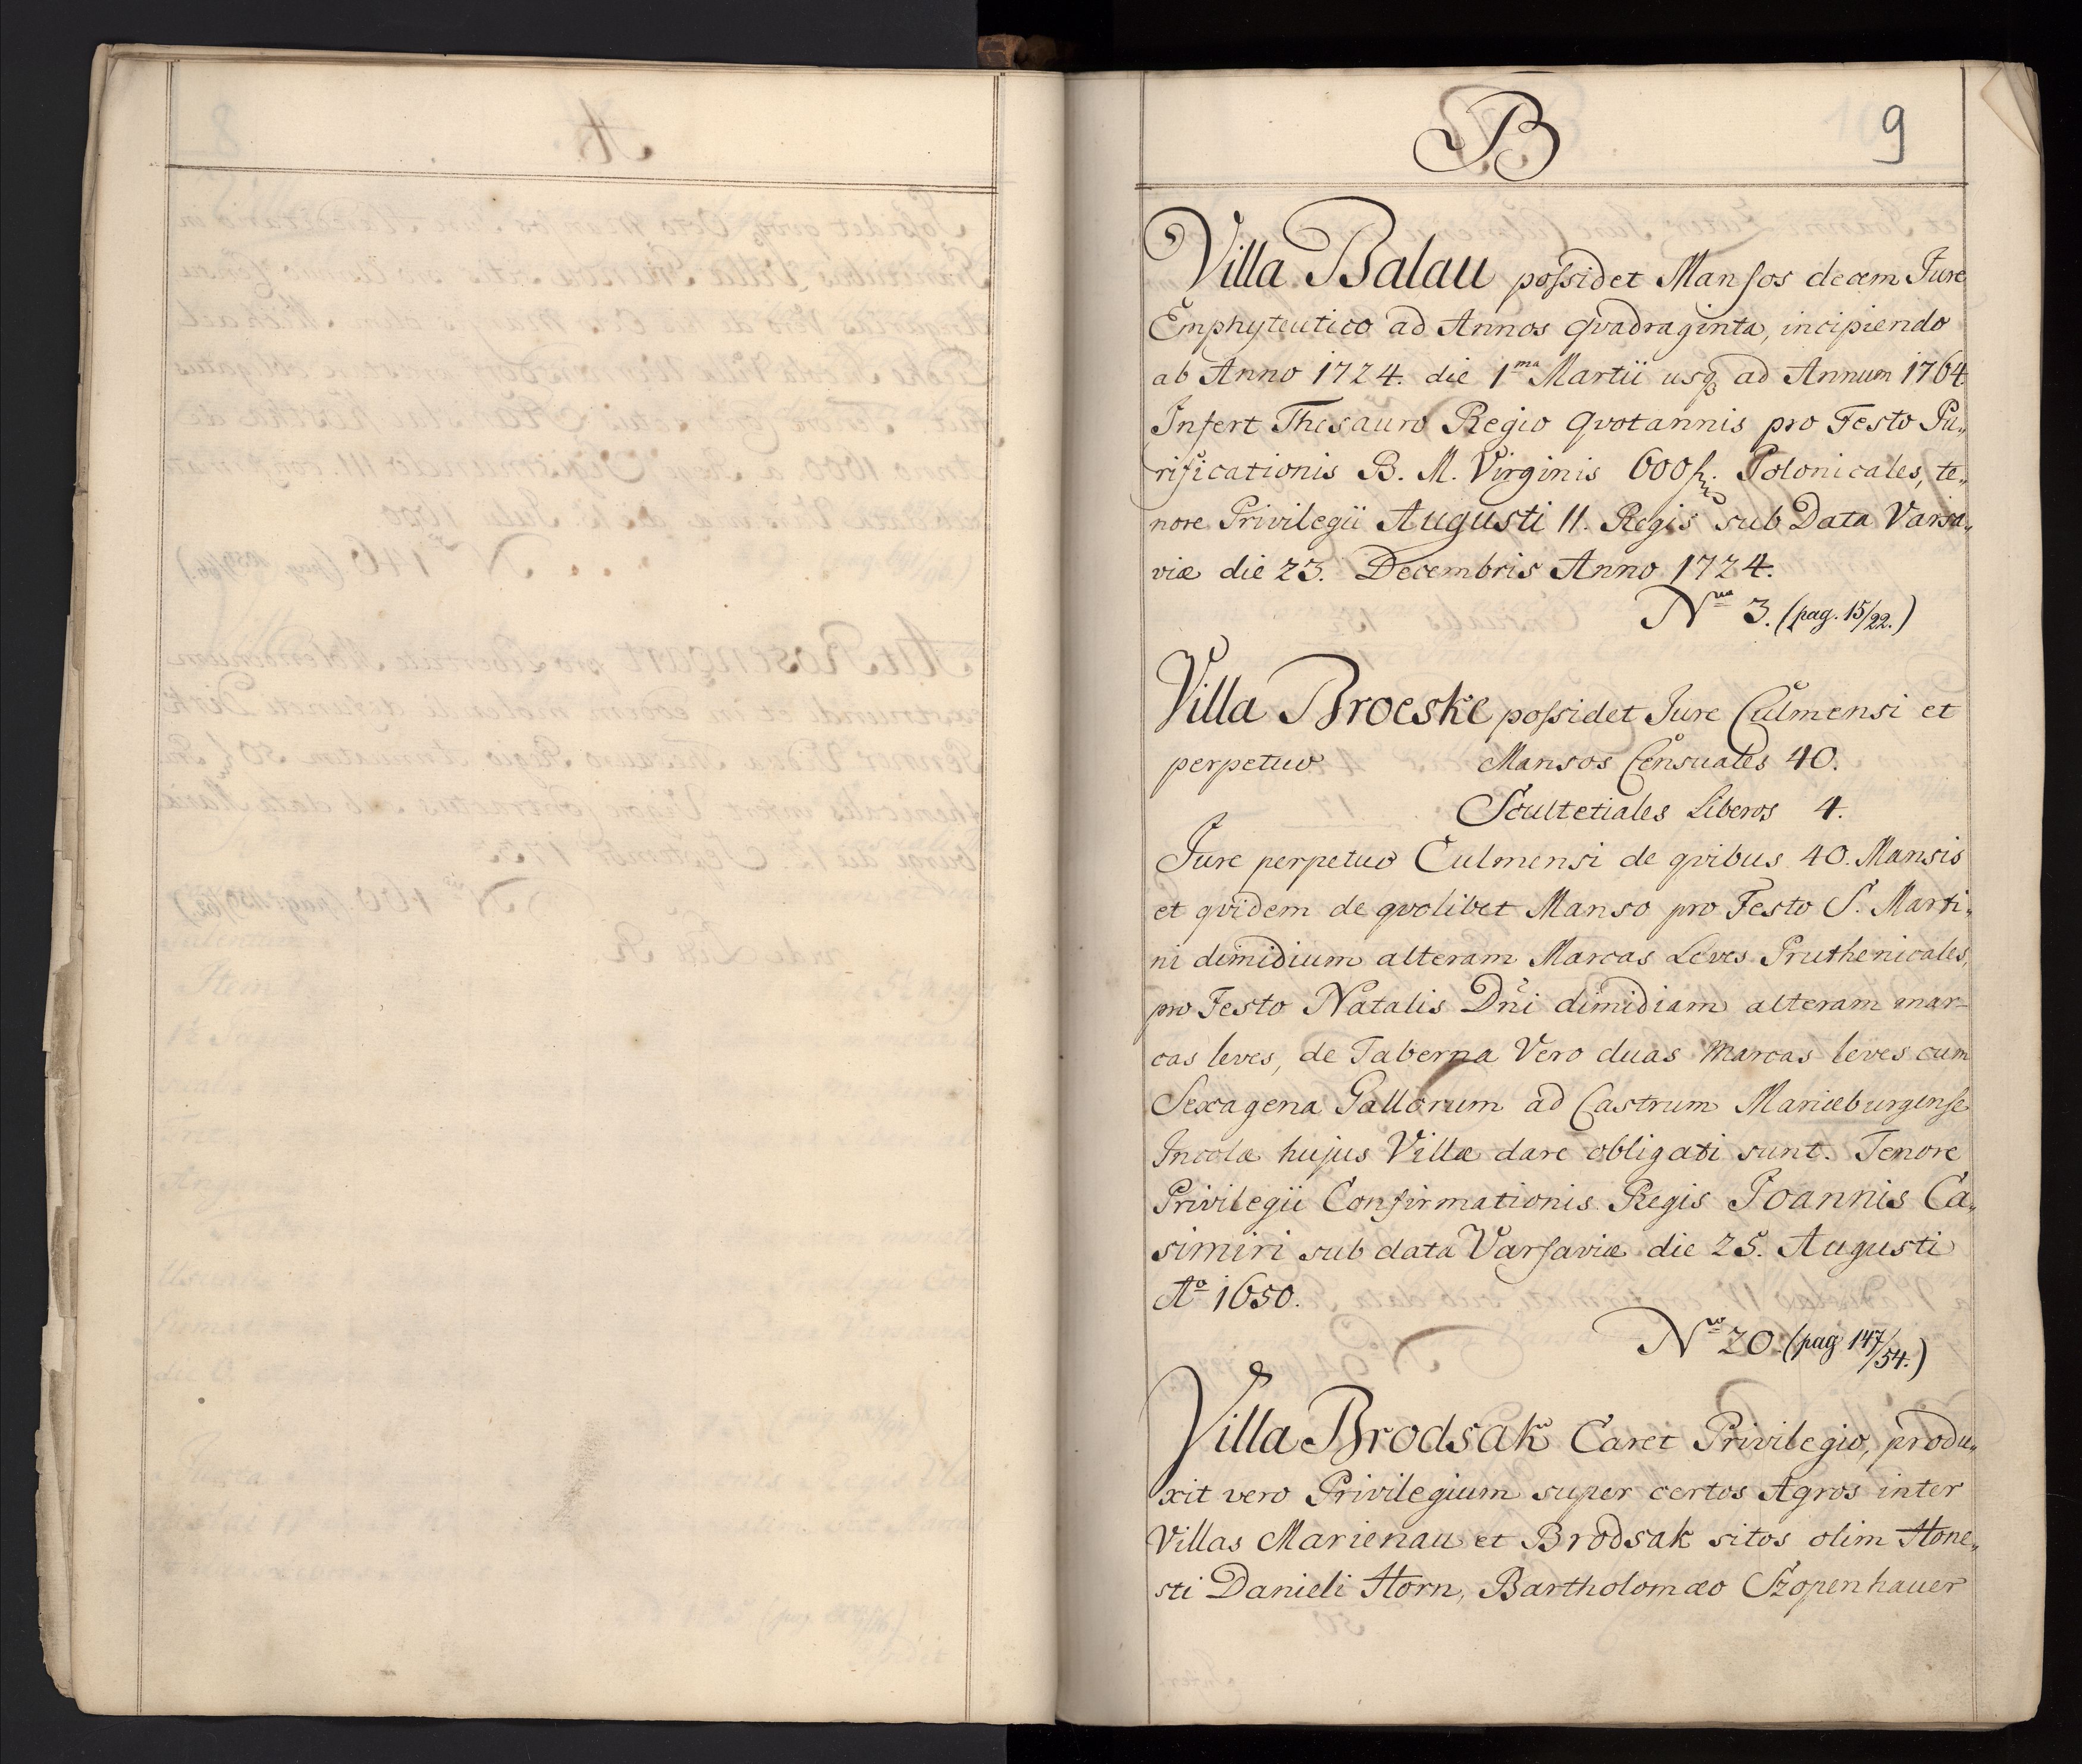 B
9
Villa Balau possidet Mansos decem Jure
Emphyteutico ad Annos qvadraginta, incipiendo
ab Anno 1724. die 1ma Martii usq3 ad Annum 1764
Infert Thesauro Regio qvotannis pro Festo Pu„
rificationis B. M. Virginis 600 fl. Polonicales, te„
nore Privilegii Augusti II. Regis sub Data Varsa„
viæ die 23. Decembris Anno 1724.
Nro 3. (pag. 15/22.)
Villa Broeske possidet Jure Culmensi et
perpetuo Mansos Censuales 40.
Scultetiales Liberos 4.
Jure perpetuo Culmensi de qvibus 40. Mansis
et qvidem de qvolibet Manso pro Festo S. Marti„
ni dimidium alteram Marcas Leves Pruthenicales,
pro Festo Natalis Dñi dimidiam alteram mar-
cas leves, de Taberna Vero duas marcas leves cum
Sexagena Gallorum ad Castrum Mariæburgense
Incolæ hujus Villæ dare obligati sunt. Tenore
Privilegii Confirmationis Regis Joannis Ca„
simiri sub data Varsaviæ die 25. Augusti
Aº 1650.
Nro 20. (pag 147/54.)
Villa Brodsak Caret Privilegio, produ„
xit vero Privilegium super certos Agros inter
Villas Marienau et Brodsak sitos olim Hone„
sti Danieli Horn, Bartholomæo Szopenhauer